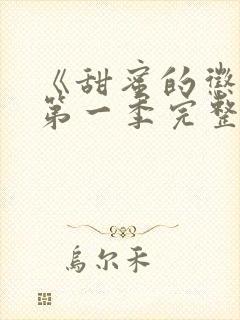 《甜蜜的徵
第一季完整
烏尔禾